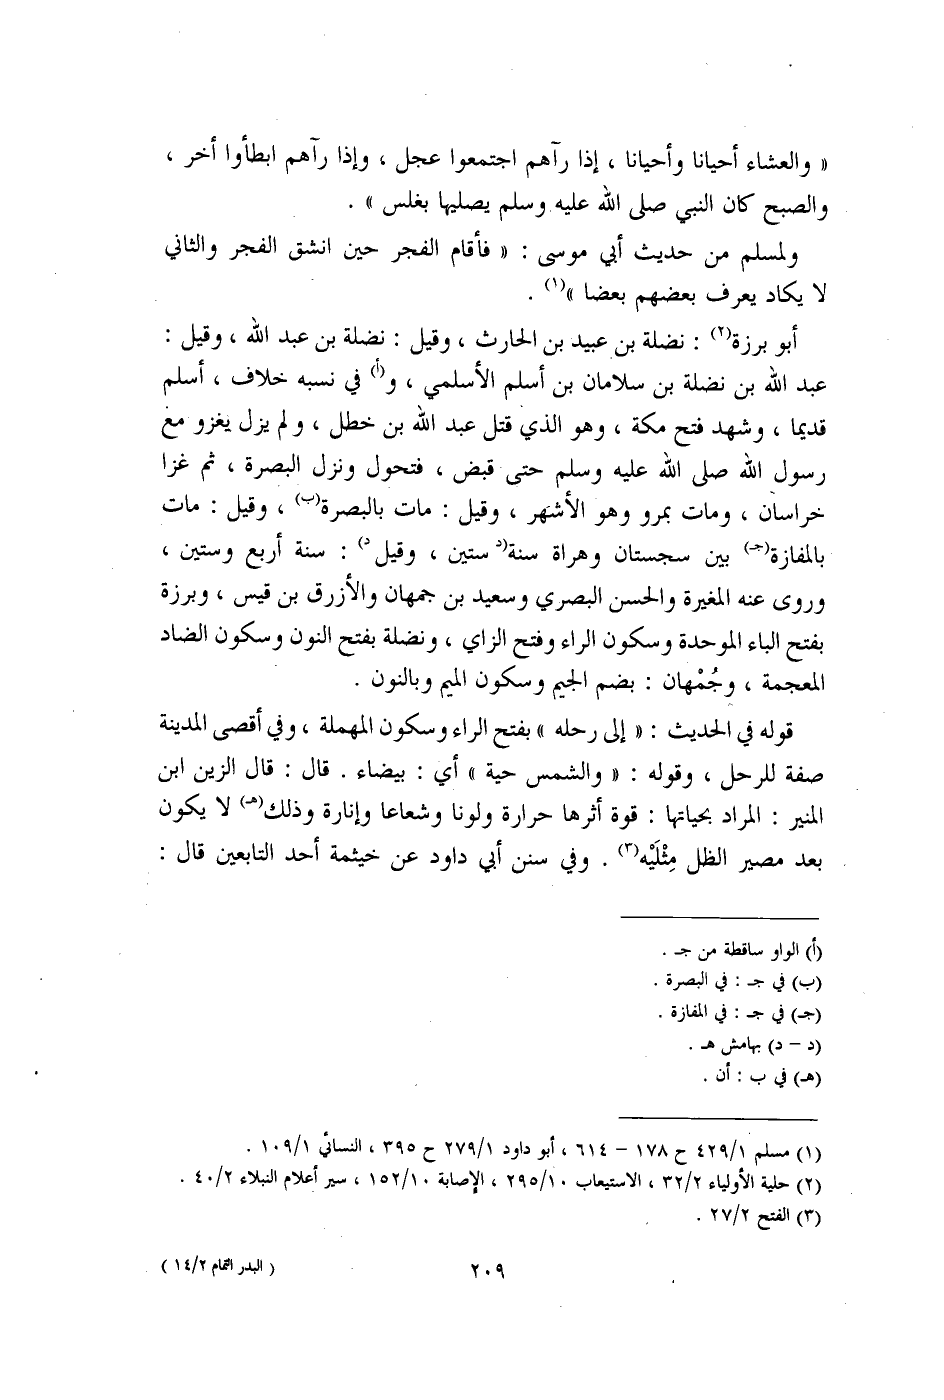 « والعشاء أحيانا وأحيانا ، إذا رآهم اجتمعوا عجل ، وإذا رآهم ابطأوا أخر ،
والصبح كان النبي صلى الله عليه وسلم يصليها بغلس » .
ولمسلم من حديث أبي موسى : « فأقام الفجر حين انشق الفجر والثاني
لا يكاد يعرف بعضهم بعضا »(١) .
أبو برزة(٢) : نضلة بن عبيد بن الحارث ، وقيل : نضلة بن عبد الله ، وقيل :
عبد الله بن نضلة بن سلامان بن أسلم الأسلمي ، و(أ) في نسبه خلاف ، أسلم
قديما ، وشهد فتح مكة ، وهو الذي قتل عبد الله بن خطل ، ولم يزل يغزو مع
رسول الله صلى الله عليه وسلم حتى قبض ، فتحول ونزل البصرة ، ثم غزا
خراسان ، ومات بمرو وهو الأشهر ، وقيل : مات بالبصرة(ب) ، وقيل : مات
بالمفازة(جـ) بين سجستان وهراة سنة(د ستين ، وقيل د) : سنة أربع وستين ،
وروى عنه المغيرة والحسن البصري وسعيد بن جمهان والأزرق بن قيس ، وبرزة
بفتح الباء الموحدة وسكون الراء وفتح الزاي ، ونضلة بفتح النون وسكون الضاد
المعجمة ، وجُمْهان : بضم الجيم وسكون الميم وبالنون .
قوله في الحديث : « إلى رحله » بفتح الراء وسكون المهملة ، وفي أقصى المدينة
صفة للرحل ، وقوله : « والشمس حية » أي : بيضاء . قال : قال الزين ابن
المنير : المراد بحياتها : قوة أثرها حرارة ولونا وشعاعا وإنارة وذلك(هـ) لا يكون
بعد مصير الظل مِثْلَيْه(٣) . وفي سنن أبي داود عن خيثمة أحد التابعين قال :
(أ) الواو ساقطة من جـ .
(ب) في جـ : في البصرة .
(جـ) في جـ : في المفازة .
(د – د) بهامش هـ .
(هـ) في ب : أن .
(١) مسلم ٤٢٩/١ ح ١٧٨ – ٦١٤ ، أبو داود ٢٧٩/١ ح ٣٩٥ ، النسائي ١٠٩/١ .
(٢) حلية الأولياء ٣٢/٢ ، الاستيعاب ٢٩٥/١٠ ، الإصابة ١٥٢/١٠ ، سير أعلام النبلاء ٤٠/٢ .
(٣) الفتح ٢٧/٢ .
٢٠٩
( البدر التمام ١٤/٢ )